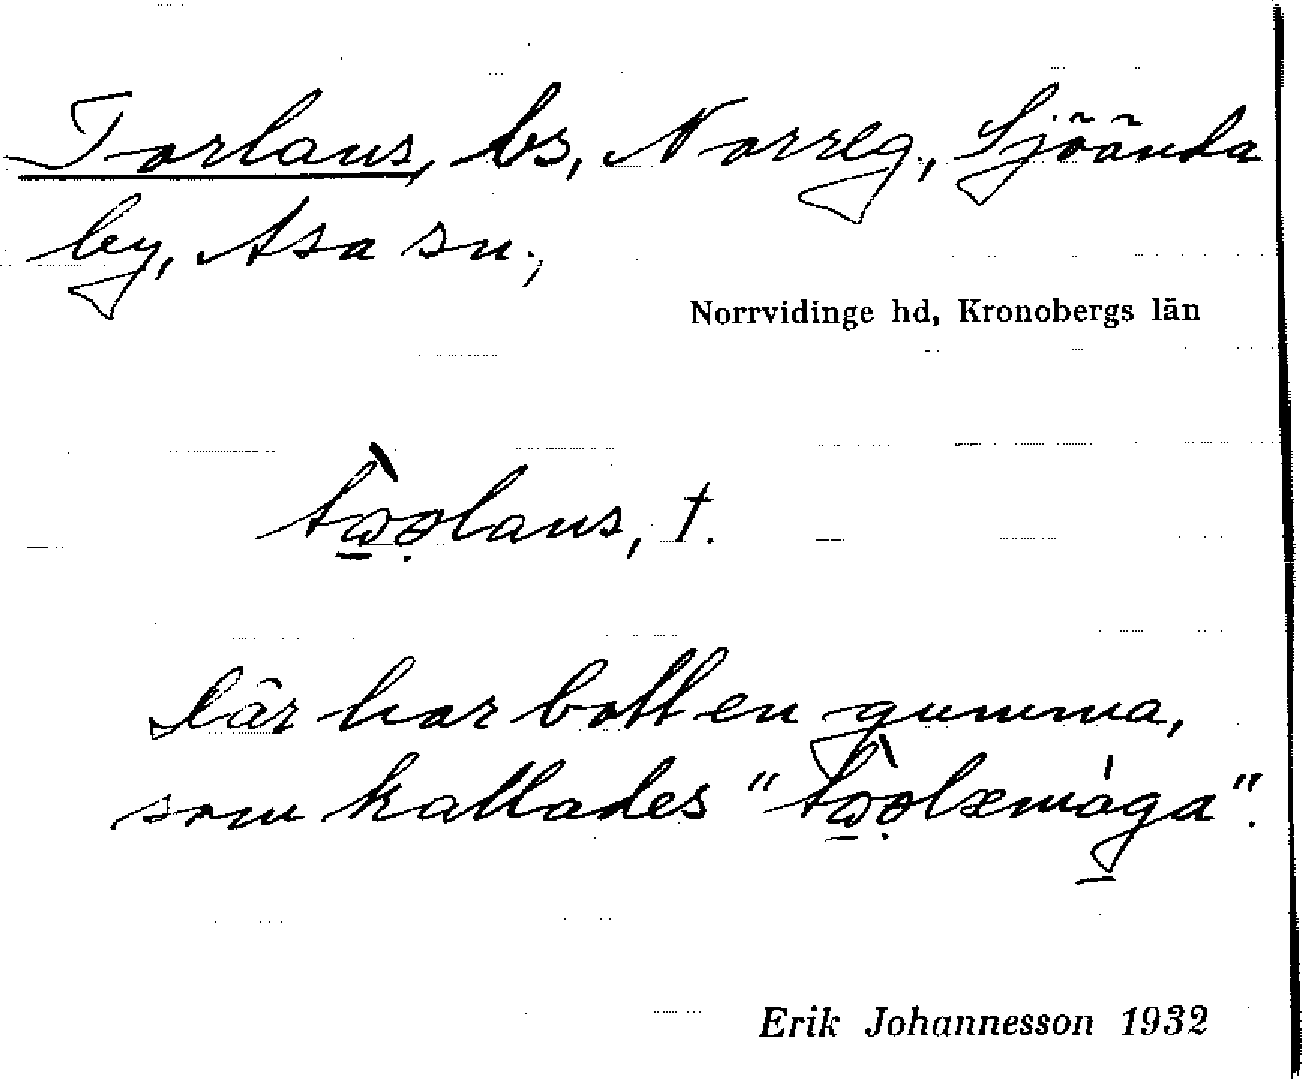 Torlaus, bs, Norreg., Sjöända
by, Asa sn.,
Norrvidinge hd, Kronobergs län
Där har bott en gumma,
som kallades
Erik Johannesson 1932